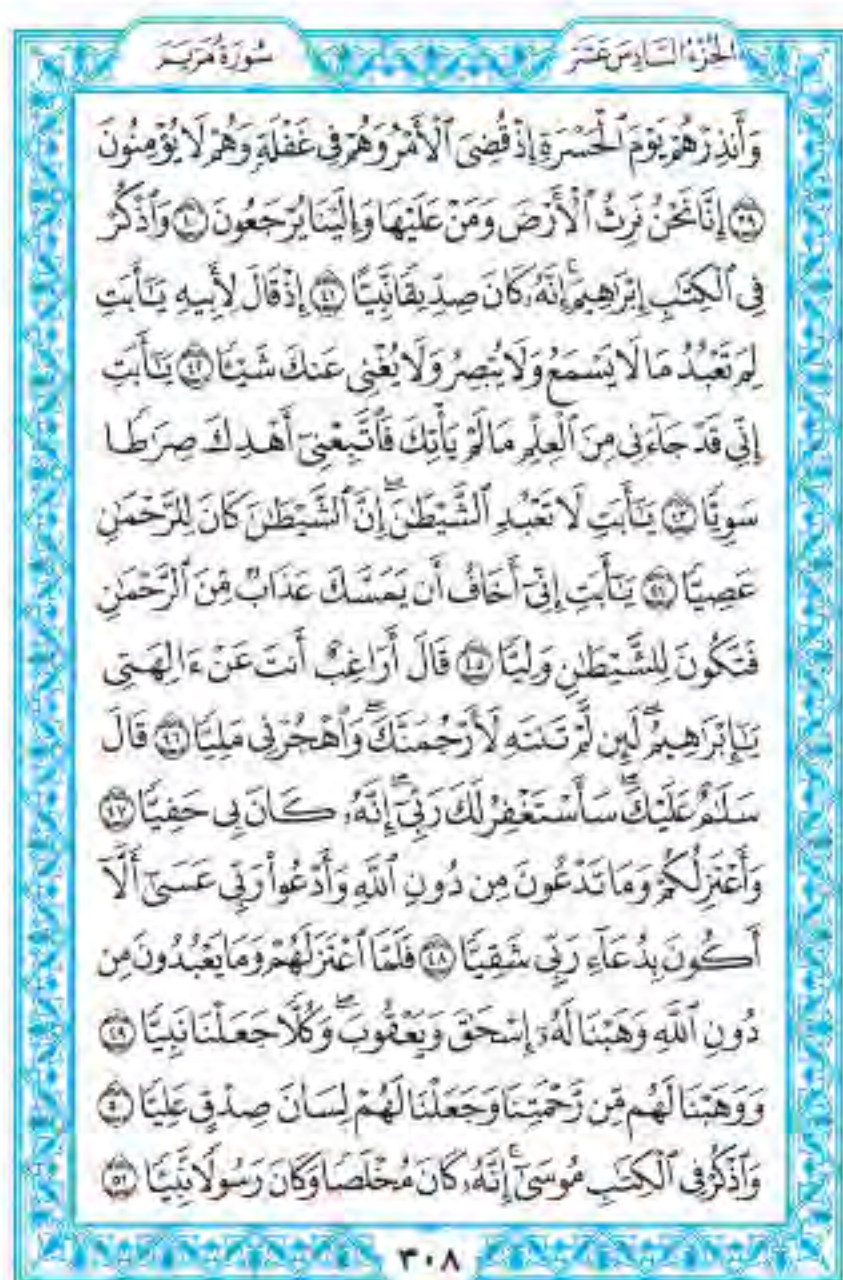 الجزء السادس عشر
سورة مريم
وَأَنذِرْهُمْ يَوْمَ ٱلْحَسْرَةِ إِذْ قُضِىَ ٱلْأَمْرُ وَهُمْ فِى غَفْلَةٍ وَهُمْ لَا يُؤْمِنُونَ
٣٩ إِنَّا نَحْنُ نَرِثُ ٱلْأَرْضَ وَمَنْ عَلَيْهَا وَإِلَيْنَا يُرْجَعُونَ ٤٠ وَٱذْكُرْ
فِى ٱلْكِتَٰبِ إِبْرَٰهِيمَ إِنَّهُۥ كَانَ صِدِّيقًا نَّبِيًّا ٤١ إِذْ قَالَ لِأَبِيهِ يَٰٓأَبَتِ
لِمَ تَعْبُدُ مَا لَا يَسْمَعُ وَلَا يُبْصِرُ وَلَا يُغْنِى عَنكَ شَيْـًٔا ٤٢ يَٰٓأَبَتِ
إِنِّى قَدْ جَآءَنِى مِنَ ٱلْعِلْمِ مَا لَمْ يَأْتِكَ فَٱتَّبِعْنِىٓ أَهْدِكَ صِرَٰطًا
سَوِيًّا ٤٣ يَٰٓأَبَتِ لَا تَعْبُدِ ٱلشَّيْطَٰنَ إِنَّ ٱلشَّيْطَٰنَ كَانَ لِلرَّحْمَٰنِ
عَصِيًّا ٤٤ يَٰٓأَبَتِ إِنِّىٓ أَخَافُ أَن يَمَسَّكَ عَذَابٌ مِّنَ ٱلرَّحْمَٰنِ
فَتَكُونَ لِلشَّيْطَٰنِ وَلِيًّا ٤٥ قَالَ أَرَاغِبٌ أَنتَ عَنْ ءَالِهَتِى
يَٰٓإِبْرَٰهِيمُ لَئِن لَّمْ تَنتَهِ لَأَرْجُمَنَّكَ وَٱهْجُرْنِى مَلِيًّا ٤٦ قَالَ
سَلَٰمٌ عَلَيْكَ سَأَسْتَغْفِرُ لَكَ رَبِّىٓ إِنَّهُۥ كَانَ بِى حَفِيًّا ٤٧
وَأَعْتَزِلُكُمْ وَمَا تَدْعُونَ مِن دُونِ ٱللَّهِ وَأَدْعُوا۟ رَبِّى عَسَىٰٓ أَلَّآ
أَكُونَ بِدُعَآءِ رَبِّى شَقِيًّا ٤٨ فَلَمَّا ٱعْتَزَلَهُمْ وَمَا يَعْبُدُونَ مِن
دُونِ ٱللَّهِ وَهَبْنَا لَهُۥٓ إِسْحَٰقَ وَيَعْقُوبَ وَكُلًّا جَعَلْنَا نَبِيًّا ٤٩
وَوَهَبْنَا لَهُم مِّن رَّحْمَتِنَا وَجَعَلْنَا لَهُمْ لِسَانَ صِدْقٍ عَلِيًّا ٥٠
وَٱذْكُرْ فِى ٱلْكِتَٰبِ مُوسَىٰٓ إِنَّهُۥ كَانَ مُخْلَصًا وَكَانَ رَسُولًا نَّبِيًّا ٥١
٣٠٨